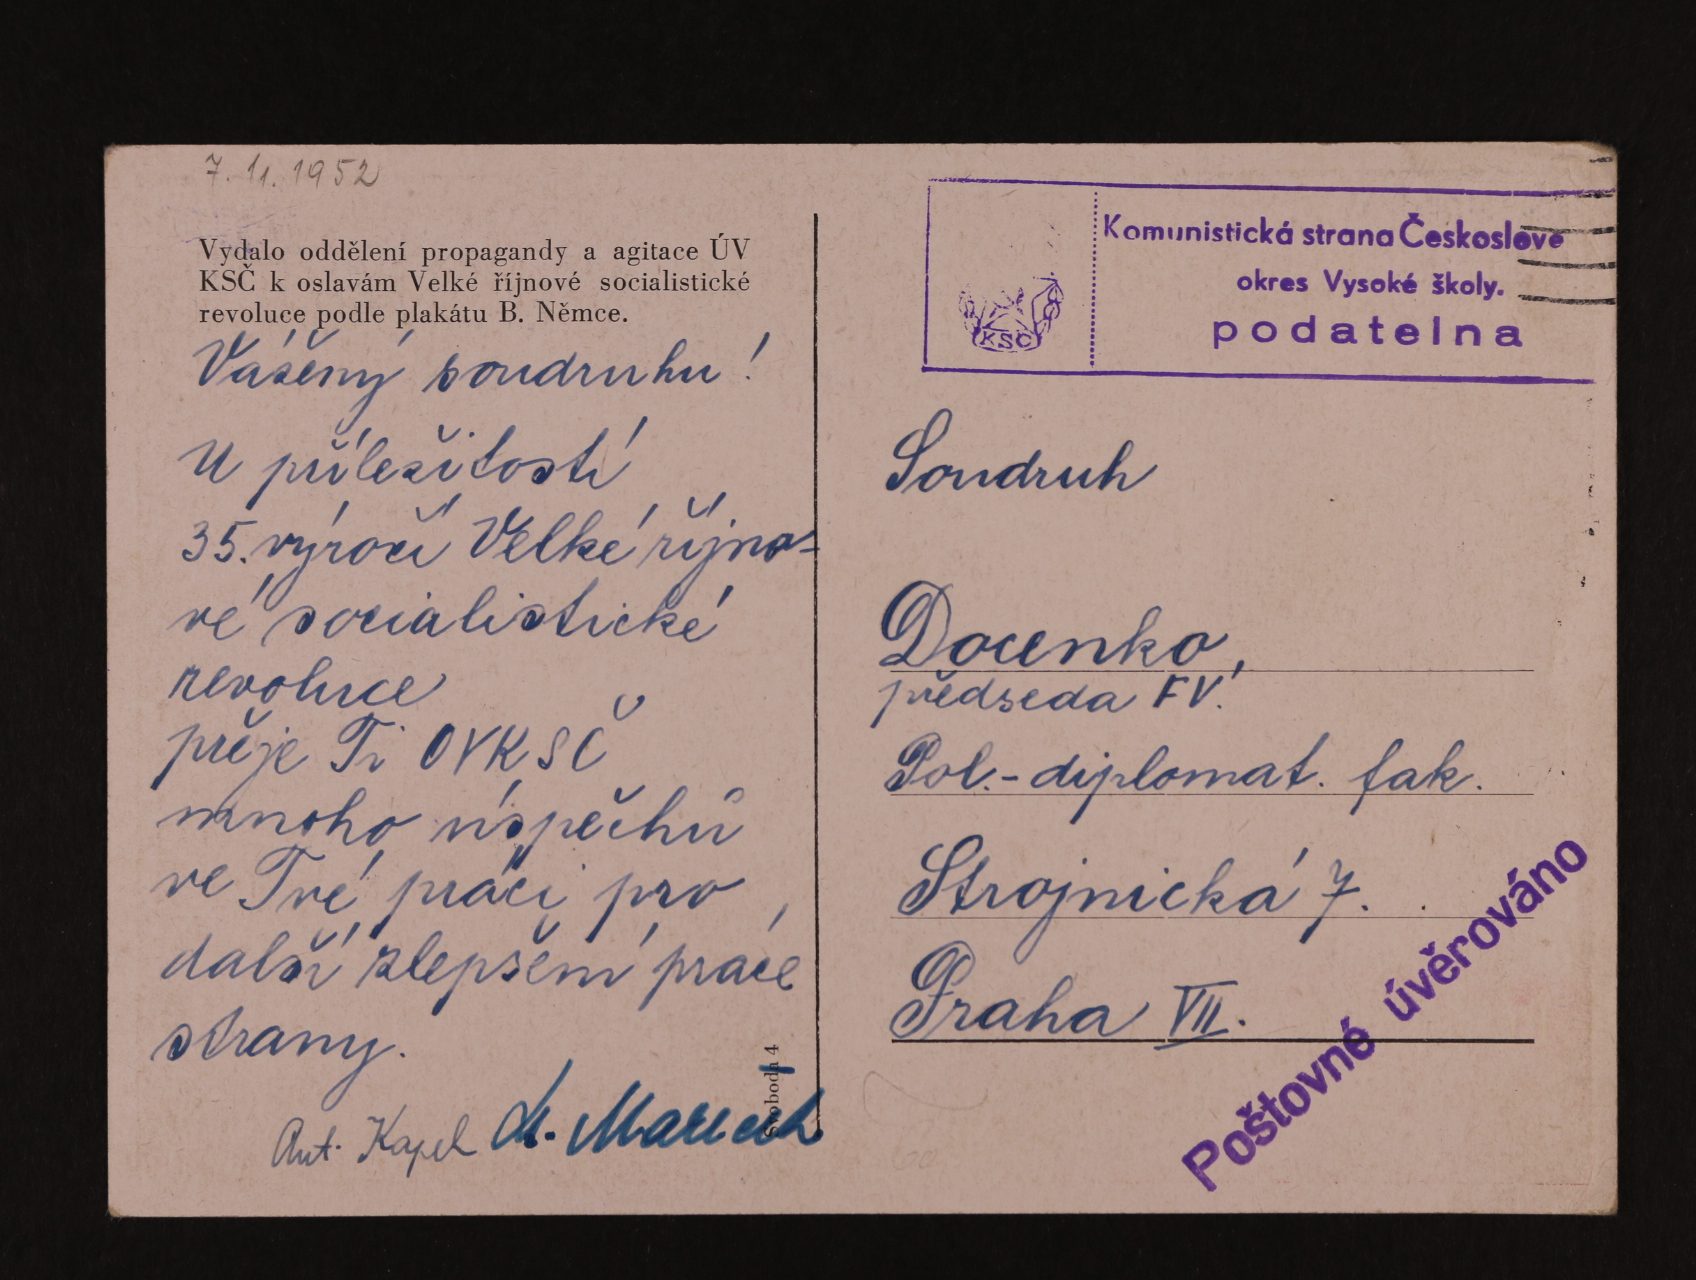 7. 11. 1952
Vydalo oddělení propagandy a agitace ÚV
KSČ k oslavám Velké říjnové socialistické
revoluce podle plakátu B. Němce.
Vážený soudruhu!
U příležitosti
35. výročí Velké říjno-
vé socialistické
revoluce
přeje Ti OVKSČ
mnoho úspěchů
ve Tvé práci pro
další zlepšení práce
strany.
Ant. Kapek
Svoboda 4
Komunistická strana Českoslove
okres Vysoké školy.
podatelna
KSČ
Soudruh
Docenko,
předseda FV.
Pol.-diplomat. fak.
Strojnická 7.
Praha VII.
Poštovné úvěrováno